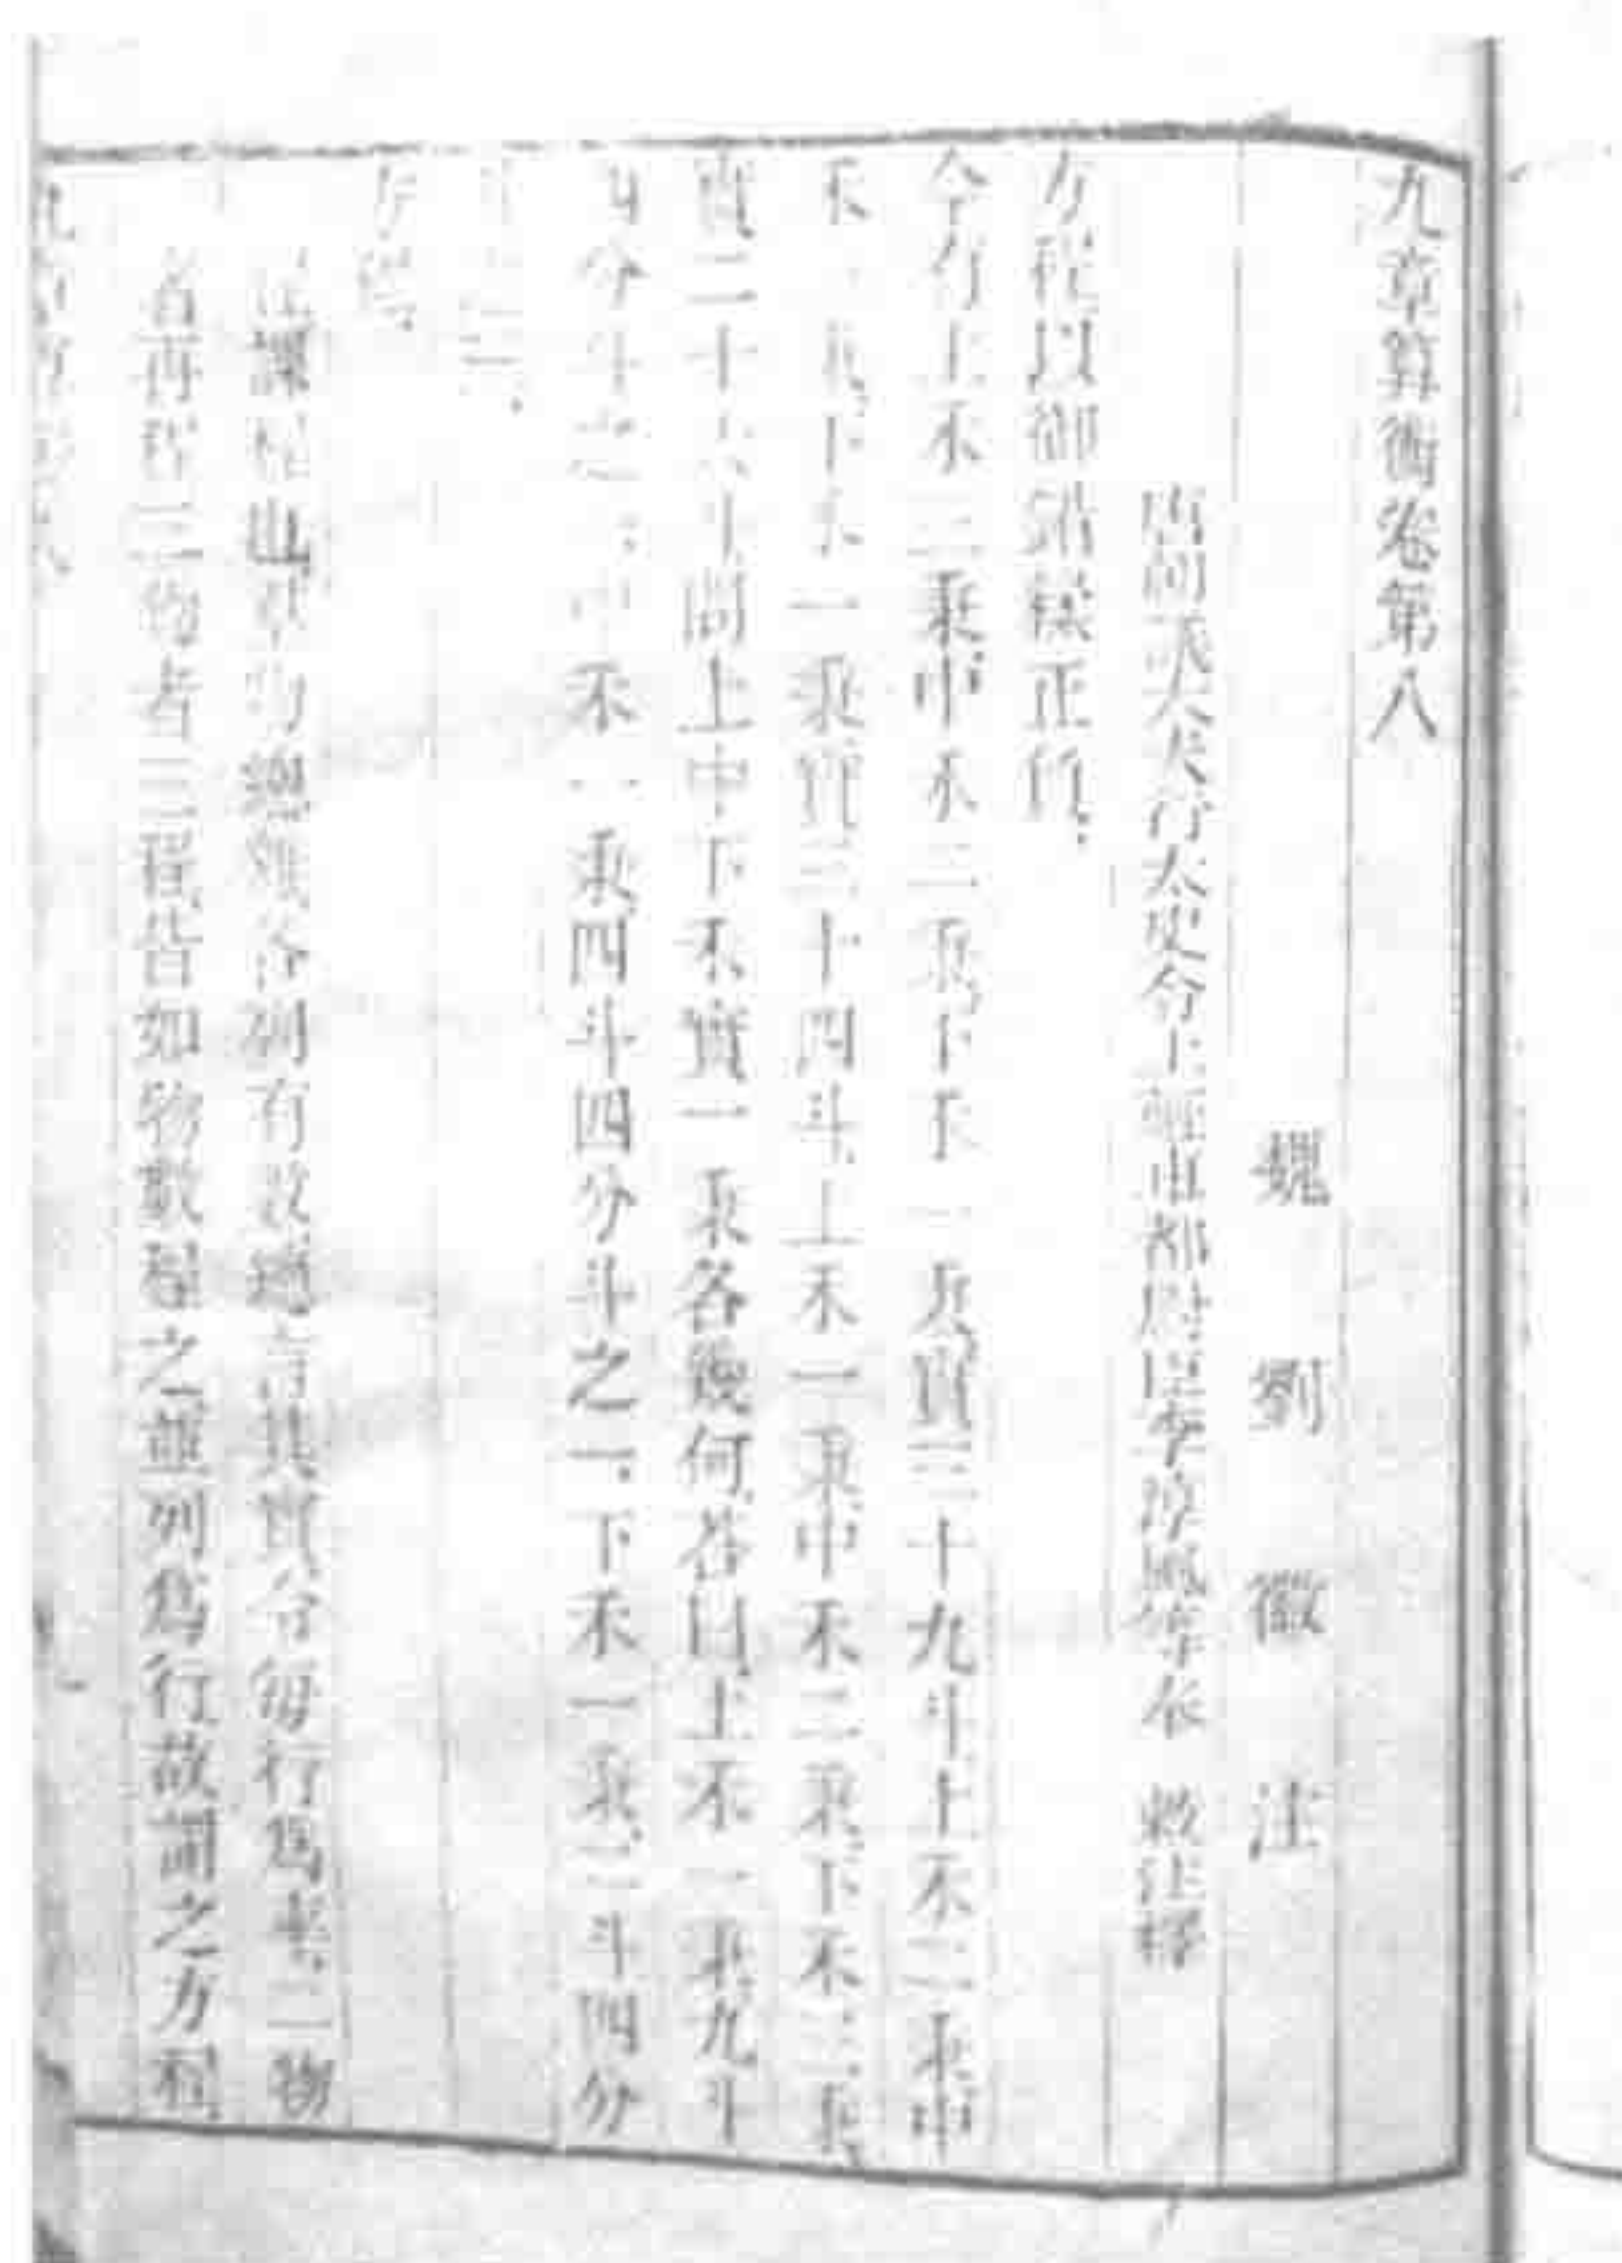 九章算術卷第八
魏劉徽注
唐朝議大夫行太史令上輕車都尉臣李淳風等奉 敕注釋
方程以御錯糅正負
今有上禾三秉中禾二秉下禾一秉實三十九斗上禾二秉中
禾三秉下禾一秉實三十四斗上禾一秉中禾二秉下禾三秉
實二十六斗問上中下禾實一秉各幾何荅曰上禾一秉九斗
四分斗之一中禾一秉四斗四分斗之一下禾一秉二斗四分
斗之三
方程
課程也羣物總雜各列有數總言其實令每行為率二物
者再程三物者三程皆如物數程之並列為行故謂之方程